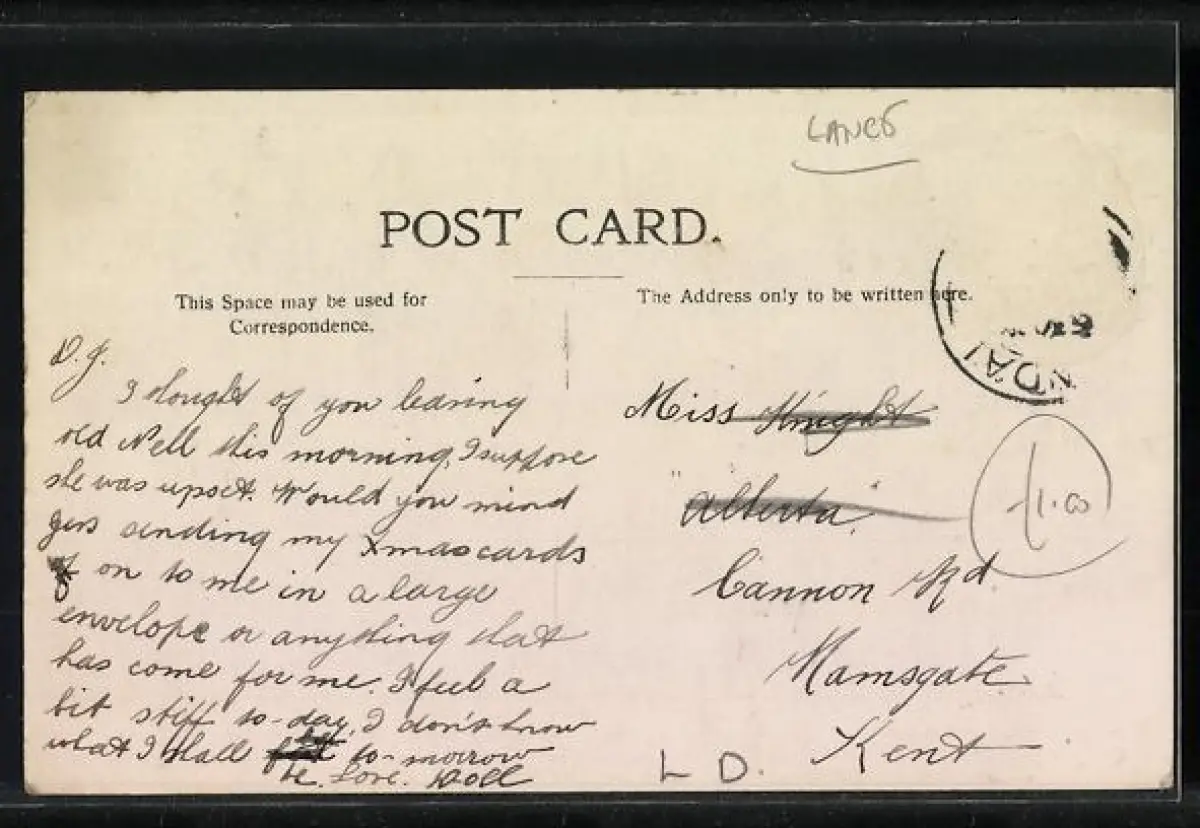 LANCS
POST CARD.
This Space may be used for
Correspondence.
The Address only to be written here.
D. J.
I thought of you leaving
old Nell this morning, I suppose
she was upset. Would you mind
just sending my Xmas cards
on to me in a large
envelope or anything that
has come for me. I feel a
bit stiff to-day, I don't know
what I shall to-morrow
be. Love. Doll
Miss Knight
"Alberta"
Cannon Rd
Ramsgate
Kent
L D.